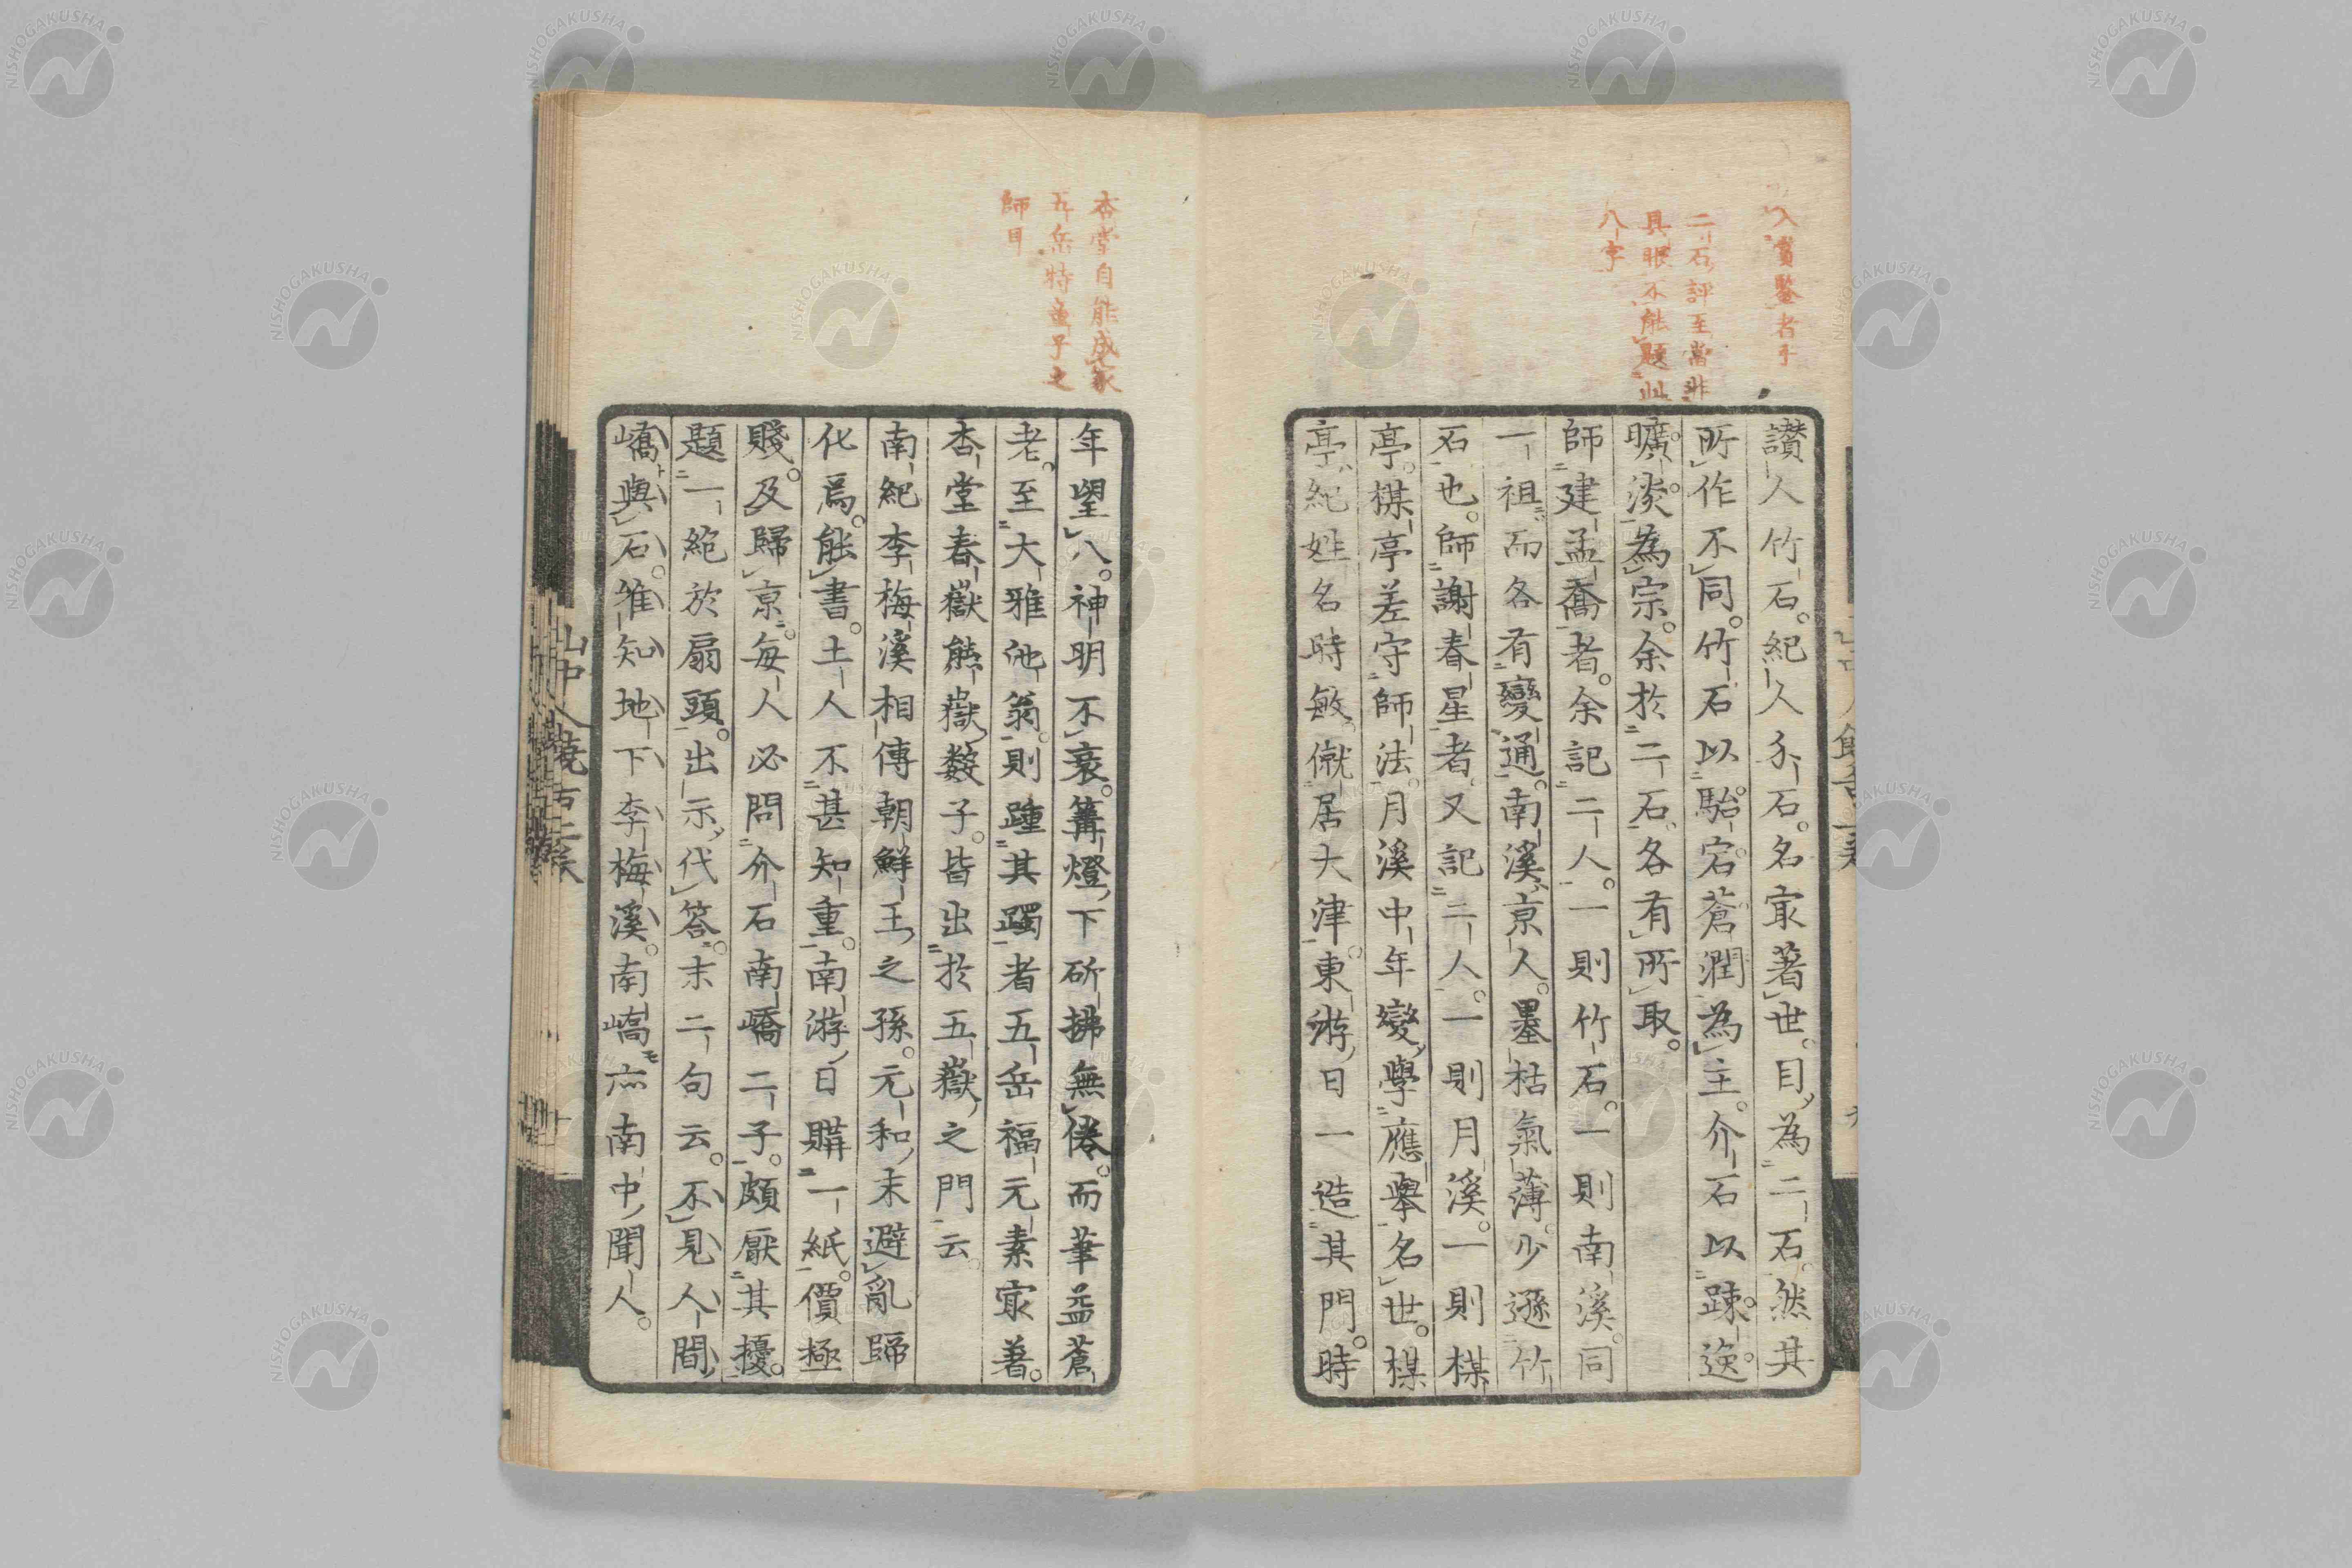 入賞鑒者乎
二石評至當非
具眼不能題此
八字
讃人竹石。紀人介石。名家著世。目為二石。然其
所作不同。竹石以駘宕蒼潤為主。介石以疎逸
曠淡為宗。余於二石、各有所取。
師建孟喬者。余記二人。一則竹石。一則南溪。同
一祖而各有變通。南溪京人。墨枯氣薄。少遜竹
石也。師謝春星者。又記二人。一則月溪。一則楳
亭。楳亭差守師法。月溪中年變學應擧名世。楳
亭、紀姓名時敏、僦居大津東。游日一造其門。時
杏堂自能成家
五岳特亜子之
師耳
年望八。神明不衰。篝燈下斫拂無倦。而筆益蒼
老。至大雅池翁。則踵其躅者五岳福元素家著。
杏堂春嶽熊嶽數子。皆出於五嶽之門云。
南紀李梅溪相傳朝鮮王之孫。元和末避亂歸
化焉。能書。土人不甚知重。南游日購一紙。價極
賤。及歸京。每人必問介石南嶠二子。頗厭其擾。
題一絶於扇頭。出示代答。末二句云。不見人間
嶠與石。惟知地下李梅溪。南嶠亦南中聞人。